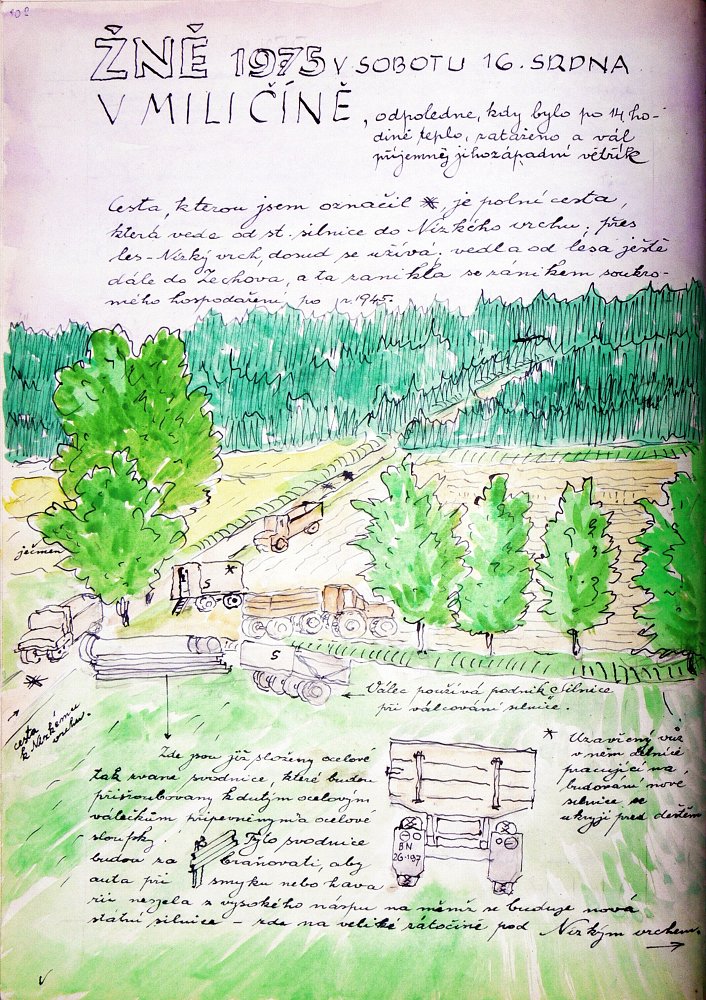 102
ŽNĚ 1975 V SOBOTU 16. SRPNA
V MILIČÍNĚ, odpoledne, kdy bylo po 14 ho-
dině teplo, zataženo a vál
příjemněj jihozápadní větřík
Cesta, kterou jsem označil *, je polní cesta,
která vede od st. silnice do Nízkého vrchu; přes
les-Nízký vrch, dosud se užívá. vedla od lesa ještě
dále do Zechova, a ta zanikla se zánikem soukro-
mého hospodaření po r. 1945.
ječmen
S *
S
*
cesta
k Nízkému
vrchu.
Válec používá podnik Silnice
při válcování silnice.
Zde jsou již složeny ocelové
tak zvané svodnice, které budou
přišroubovany k dutým ocelovým
válečkům připevněným a ocelové
sloupky. Tyto svodnice
budou za braňovati, aby
auta při smyku nebo hava
rii nesjela z vysokého náspu na němž se buduje nová
statní silnice – zde na veliké zátočině pod Nízkým vrchem.
* Uzavřený vůz
v něm dělníci
pracující na
budování nové
silnice se
ukryjí před deštěm
BN
26-197